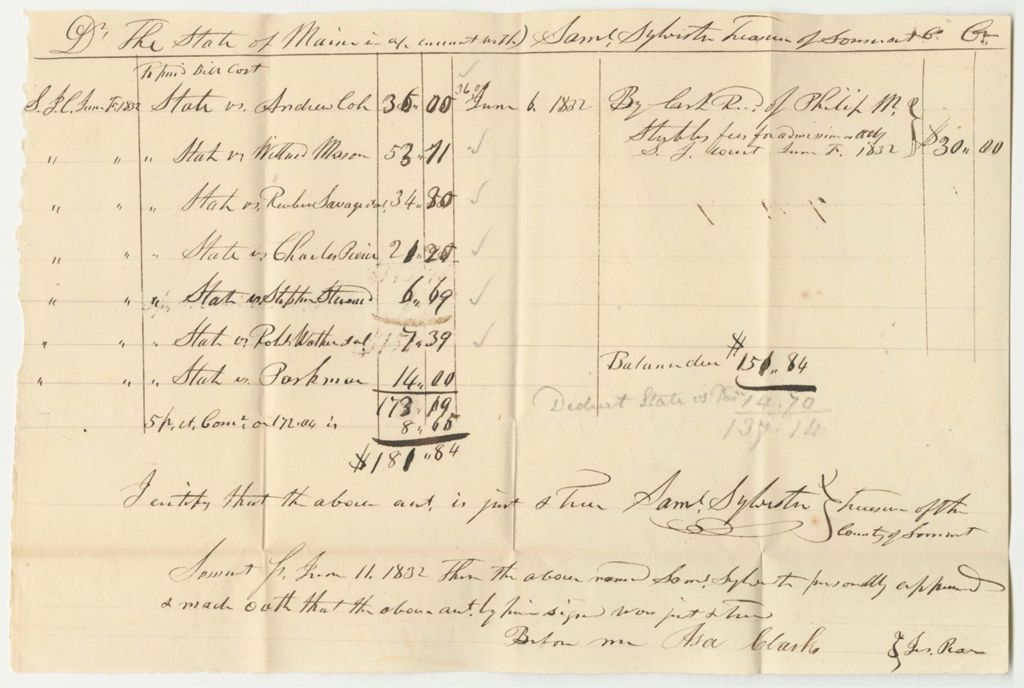 Dr. The State of Maine in a/c current with Saml. Sylvester Treasurer of Somerset Co. Cr.
To paid Bill Cost
S. J. C. June T. 1832 State vs. Andrew Cole 36 00
" " " State vs Willard Mason 53 "71
" " " State vs. Reuben Savage & al. 34 "80
" " " State vs Charles Peirce 21 "20
" " " State vs Stephen Steward 6 "69
" " " State vs Robt. Walker & al. 7 "39
" " " State vs. Parkman 14 "00
173 "19
5 pr. ct. Comn. on 172.04 is 8 "65
$181 "84
June 6. 1832 By Cash Recd. of Philip M.
Stubbs fees for admission as atty
S. J. Court June T. 1832 $30 "00
Balance due $151 "84
Deduct State vs 14.70
137.14
I certify that the above acct. is just & true Saml. Sylvester Treasurer of the
County of Somerset
Somerset ss. June 11. 1832 Then the above named Saml. Sylvester personally appeared
& made oath that the above acct. by him signed was just & true
Before me Asa Clark Jus. Peace